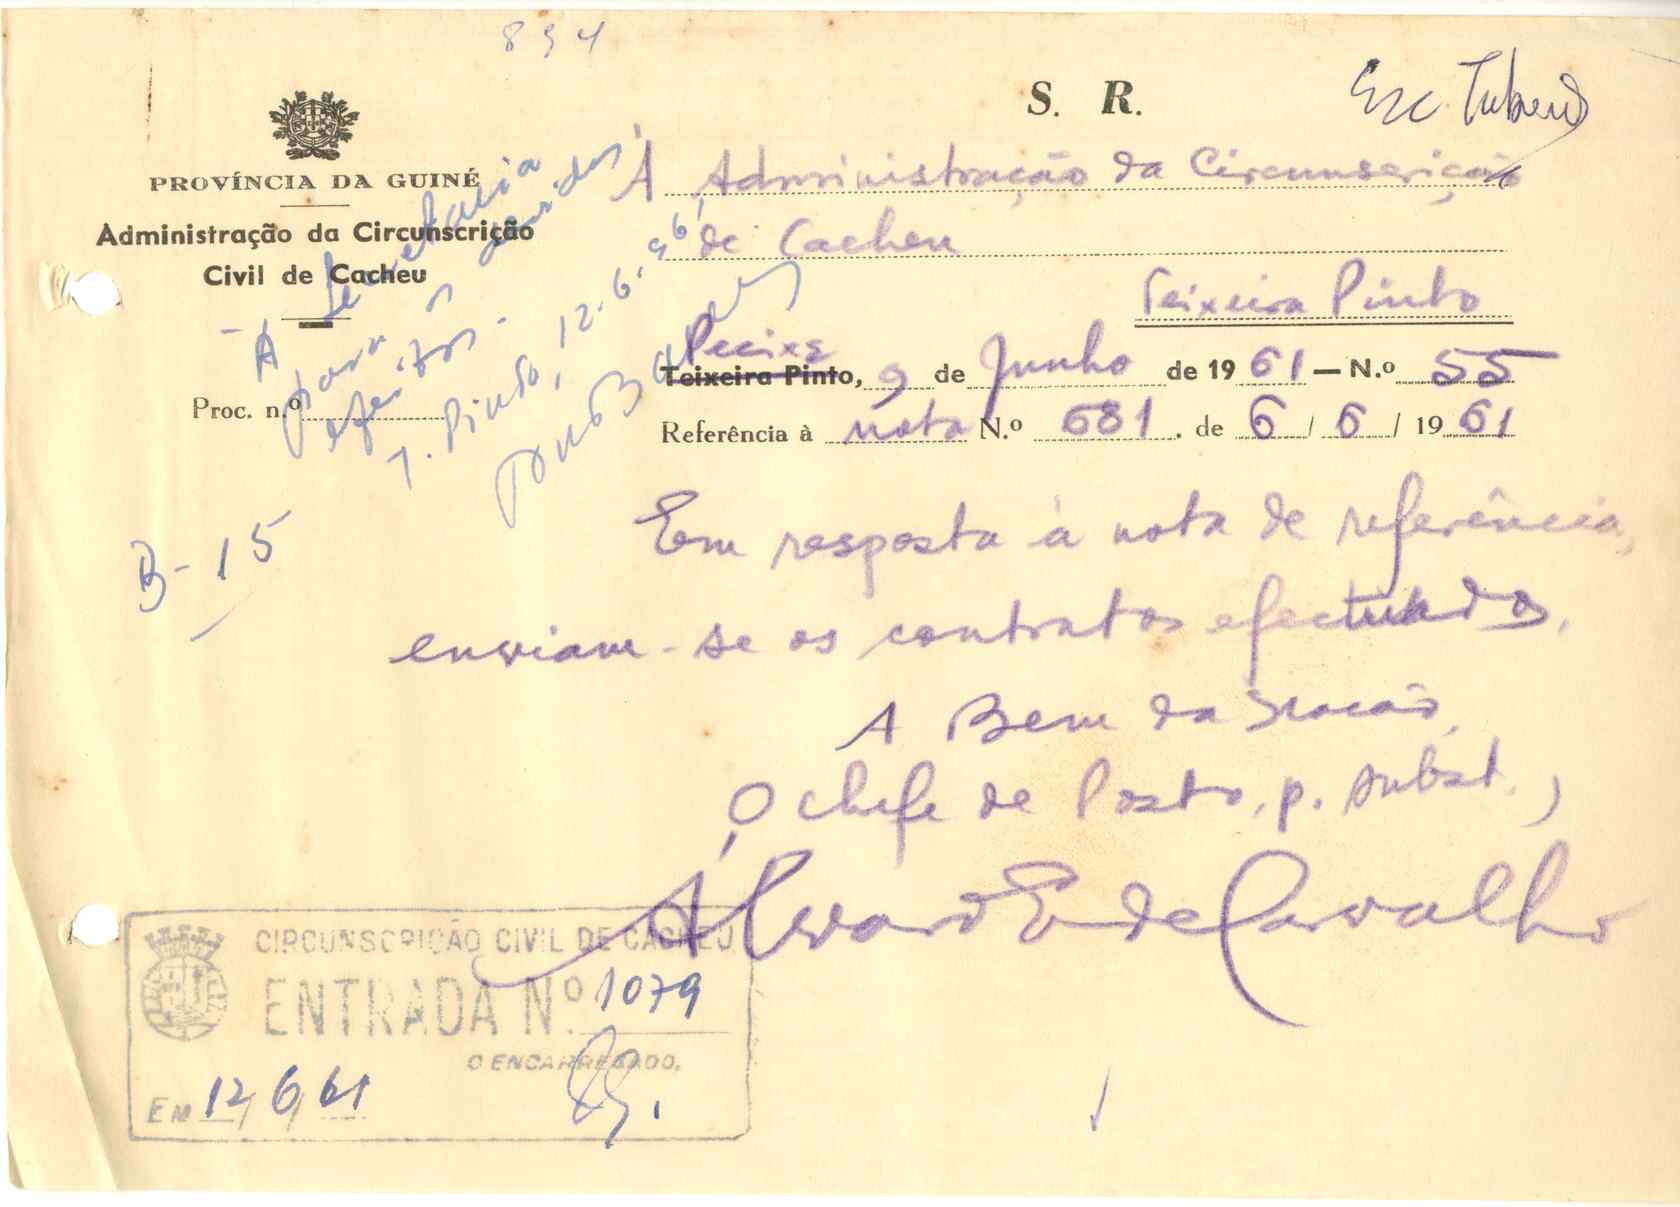 894
S. R.
Esc
PROVÍNCIA DA GUINÉ
Administração da Circunscrição
Civil de Cacheu
Proc. n.º
- À Secretaria
para os devidos
efeitos.
T. Pinto, 12.6.96
B-15
À Administração da Circunscrição
de Cacheu
Teixeira Pinto
Pecixe
Teixeira Pinto, 9 de Junho de 1961 — N.º 55
Referência à nota N.º 681. de 6 / 6 / 1961
Em resposta à nota de referência,
enviam-se os contratos efectuados.
A Bem da Nação,
O Chefe de Posto, p. subst.,
Álvaro E. de Carvalho
CIRCUNSCRIÇÃO CIVIL DE CACHEU
ENTRADA N.º 1079
O ENCARREGADO,
EM 12/6/61